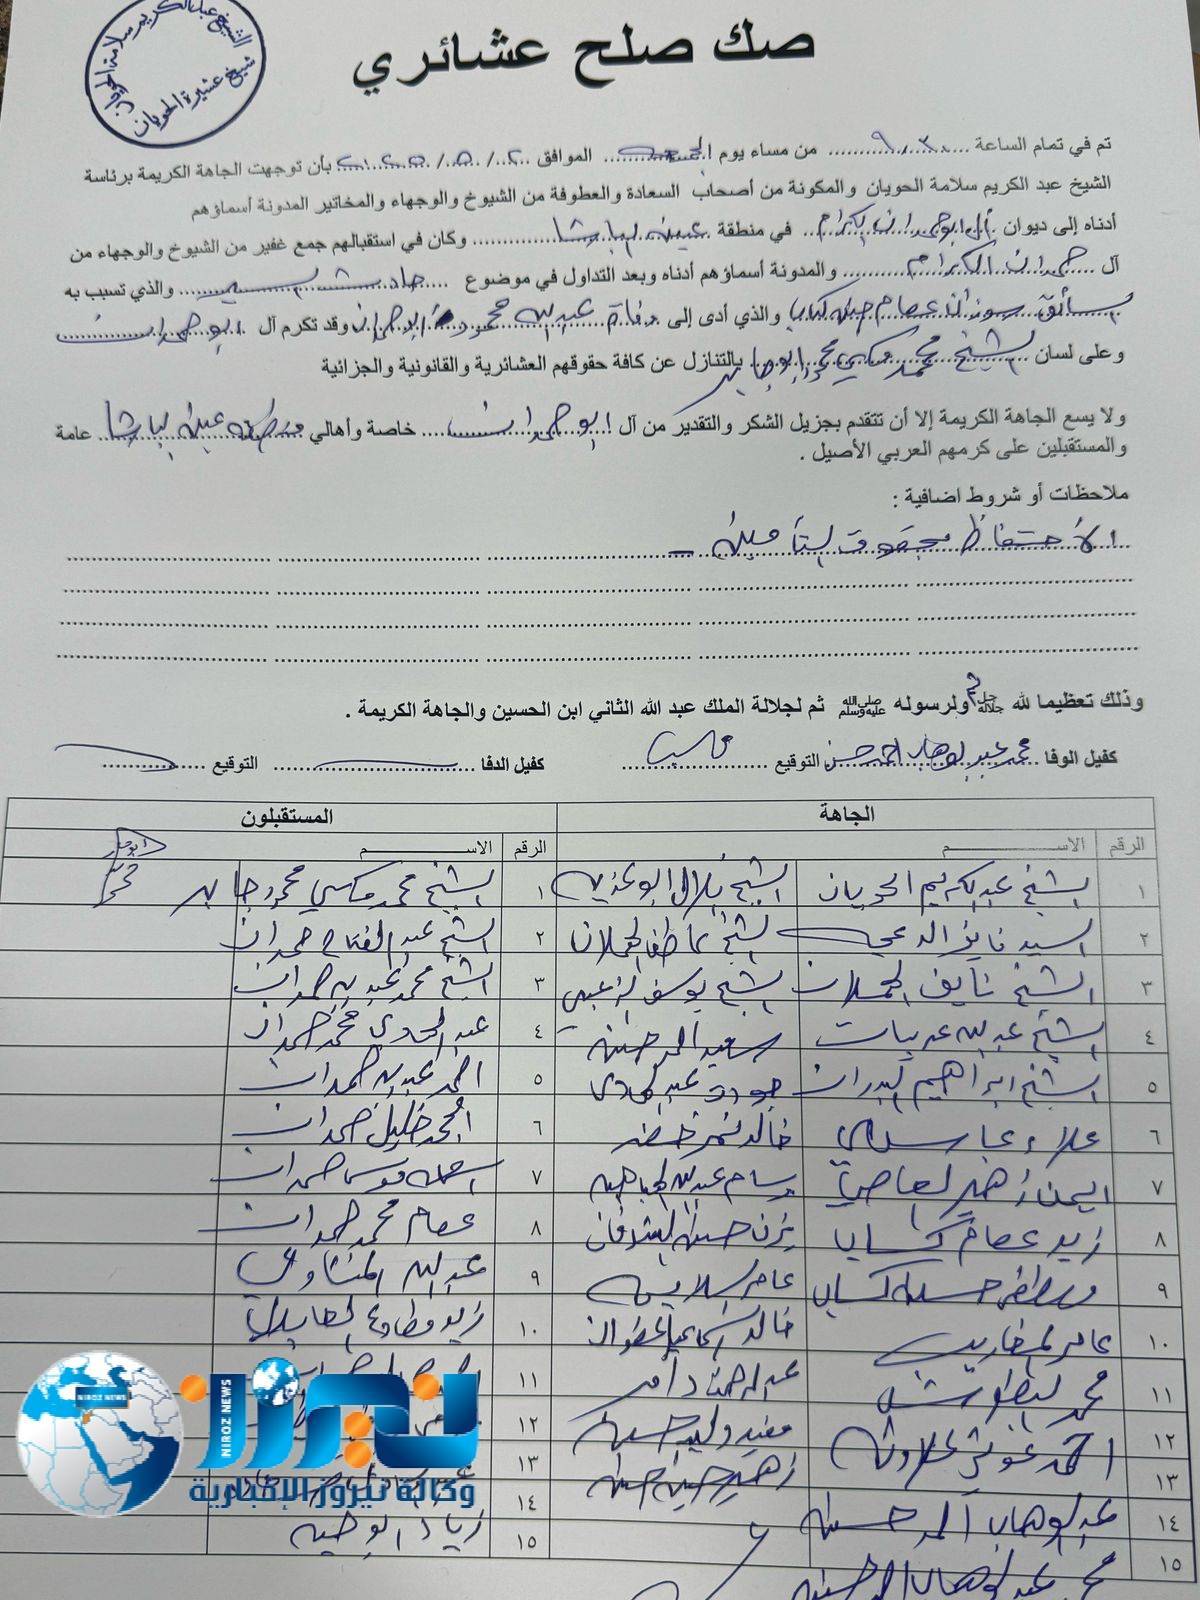 الشيخ عبدالكريم سلامة الحويان
شيخ عشيرة الحويان
صك صلح عشائري
تم في تمام الساعة ٩,٣٠ من مساء يوم الجمعه الموافق ٢٠٢٥/٥/٢ بأن توجهت الجاهة الكريمة برئاسة
الشيخ عبد الكريم سلامة الحويان والمكونة من أصحاب السعادة والعطوفة من الشيوخ والوجهاء والمخاتير المدونة أسماؤهم
أدناه إلى ديوان ال ابو حمدان الكرام في منطقة عين الباشا وكان في استقبالهم جمع غفير من الشيوخ والوجهاء من
آل حمدان الكرام والمدونة أسماؤهم أدناه وبعد التداول في موضوع حادث سير والذي تسبب به
سائق عصام والذي أدى إلى وفاة عبدالله محمود حمدان وقد تكرم آل ابو حمدان
وعلى لسان الشيخ محمد مكسي محمود ابو جابر بالتنازل عن كافة حقوقهم العشائرية والقانونية والجزائية
ولا يسع الجاهة الكريمة إلا أن تتقدم بجزيل الشكر والتقدير من آل ابو حمدان خاصة وأهالي منطقة عين الباشا عامة
والمستقبلين على كرمهم العربي الأصيل .
ملاحظات أو شروط اضافية :
الاحتفاظ بحقوق التأمين
وذلك تعظيما لله جل جلاله ولرسوله صلى الله عليه وسلم ثم لجلالة الملك عبد الله الثاني ابن الحسين والجاهة الكريمة .
كفيل الوفا محمد عبدالوهاب احمد حسن التوقيع كفيل الدفا التوقيع
الجاهة المستقبلون
الرقم الاســـــم الرقم الاســـــم
١ الشيخ عبدالكريم الحويان الشيخ بلال ابو ١ الشيخ محمد مكسي محمود جابر
٢ السيد فايز الدعجه الشيخ عاطف الحملان ٢ الشيخ عبدالفتاح حمدان
٣ الشيخ نايف الحملان الشيخ يوسف الزعبي ٣ الشيخ محمد عبدربه حمدان
٤ الشيخ عبدالله عربيات سعيد احمد حسينه ٤ عبدالهادي محمد حمدان
٥ الشيخ ابراهيم البدران جودت عبدالهادي ٥ احمد عبدربه حمدان
٦ علاء خالد نمر خضر ٦ امجد خليل حمدان
٧ ايمن زهير العاصي عبدالله ٧ موسى حمدان
٨ زيد عصام كساب يزن حسين ٨ عصام محمد حمدان
٩ كساب عامر السلايمه ٩ عبدالله المناوي
١٠ عامر المغاريب خالد اسماعيل ١٠ زيد
١١ محمد عبدالرحمن ١١
١٢ احمد مفيد وليد حسينه ١٢
١٣ زهير حسين حسينه ١٣
١٤ عبدالوهاب احمد حسينه ١٤
١٥ محمد عبدالوهاب احمد حسينه ١٥ زياد ابو
NIROZ NEWS
نيروز
NIROZ NEWS
وكالة نيروز الإخبارية